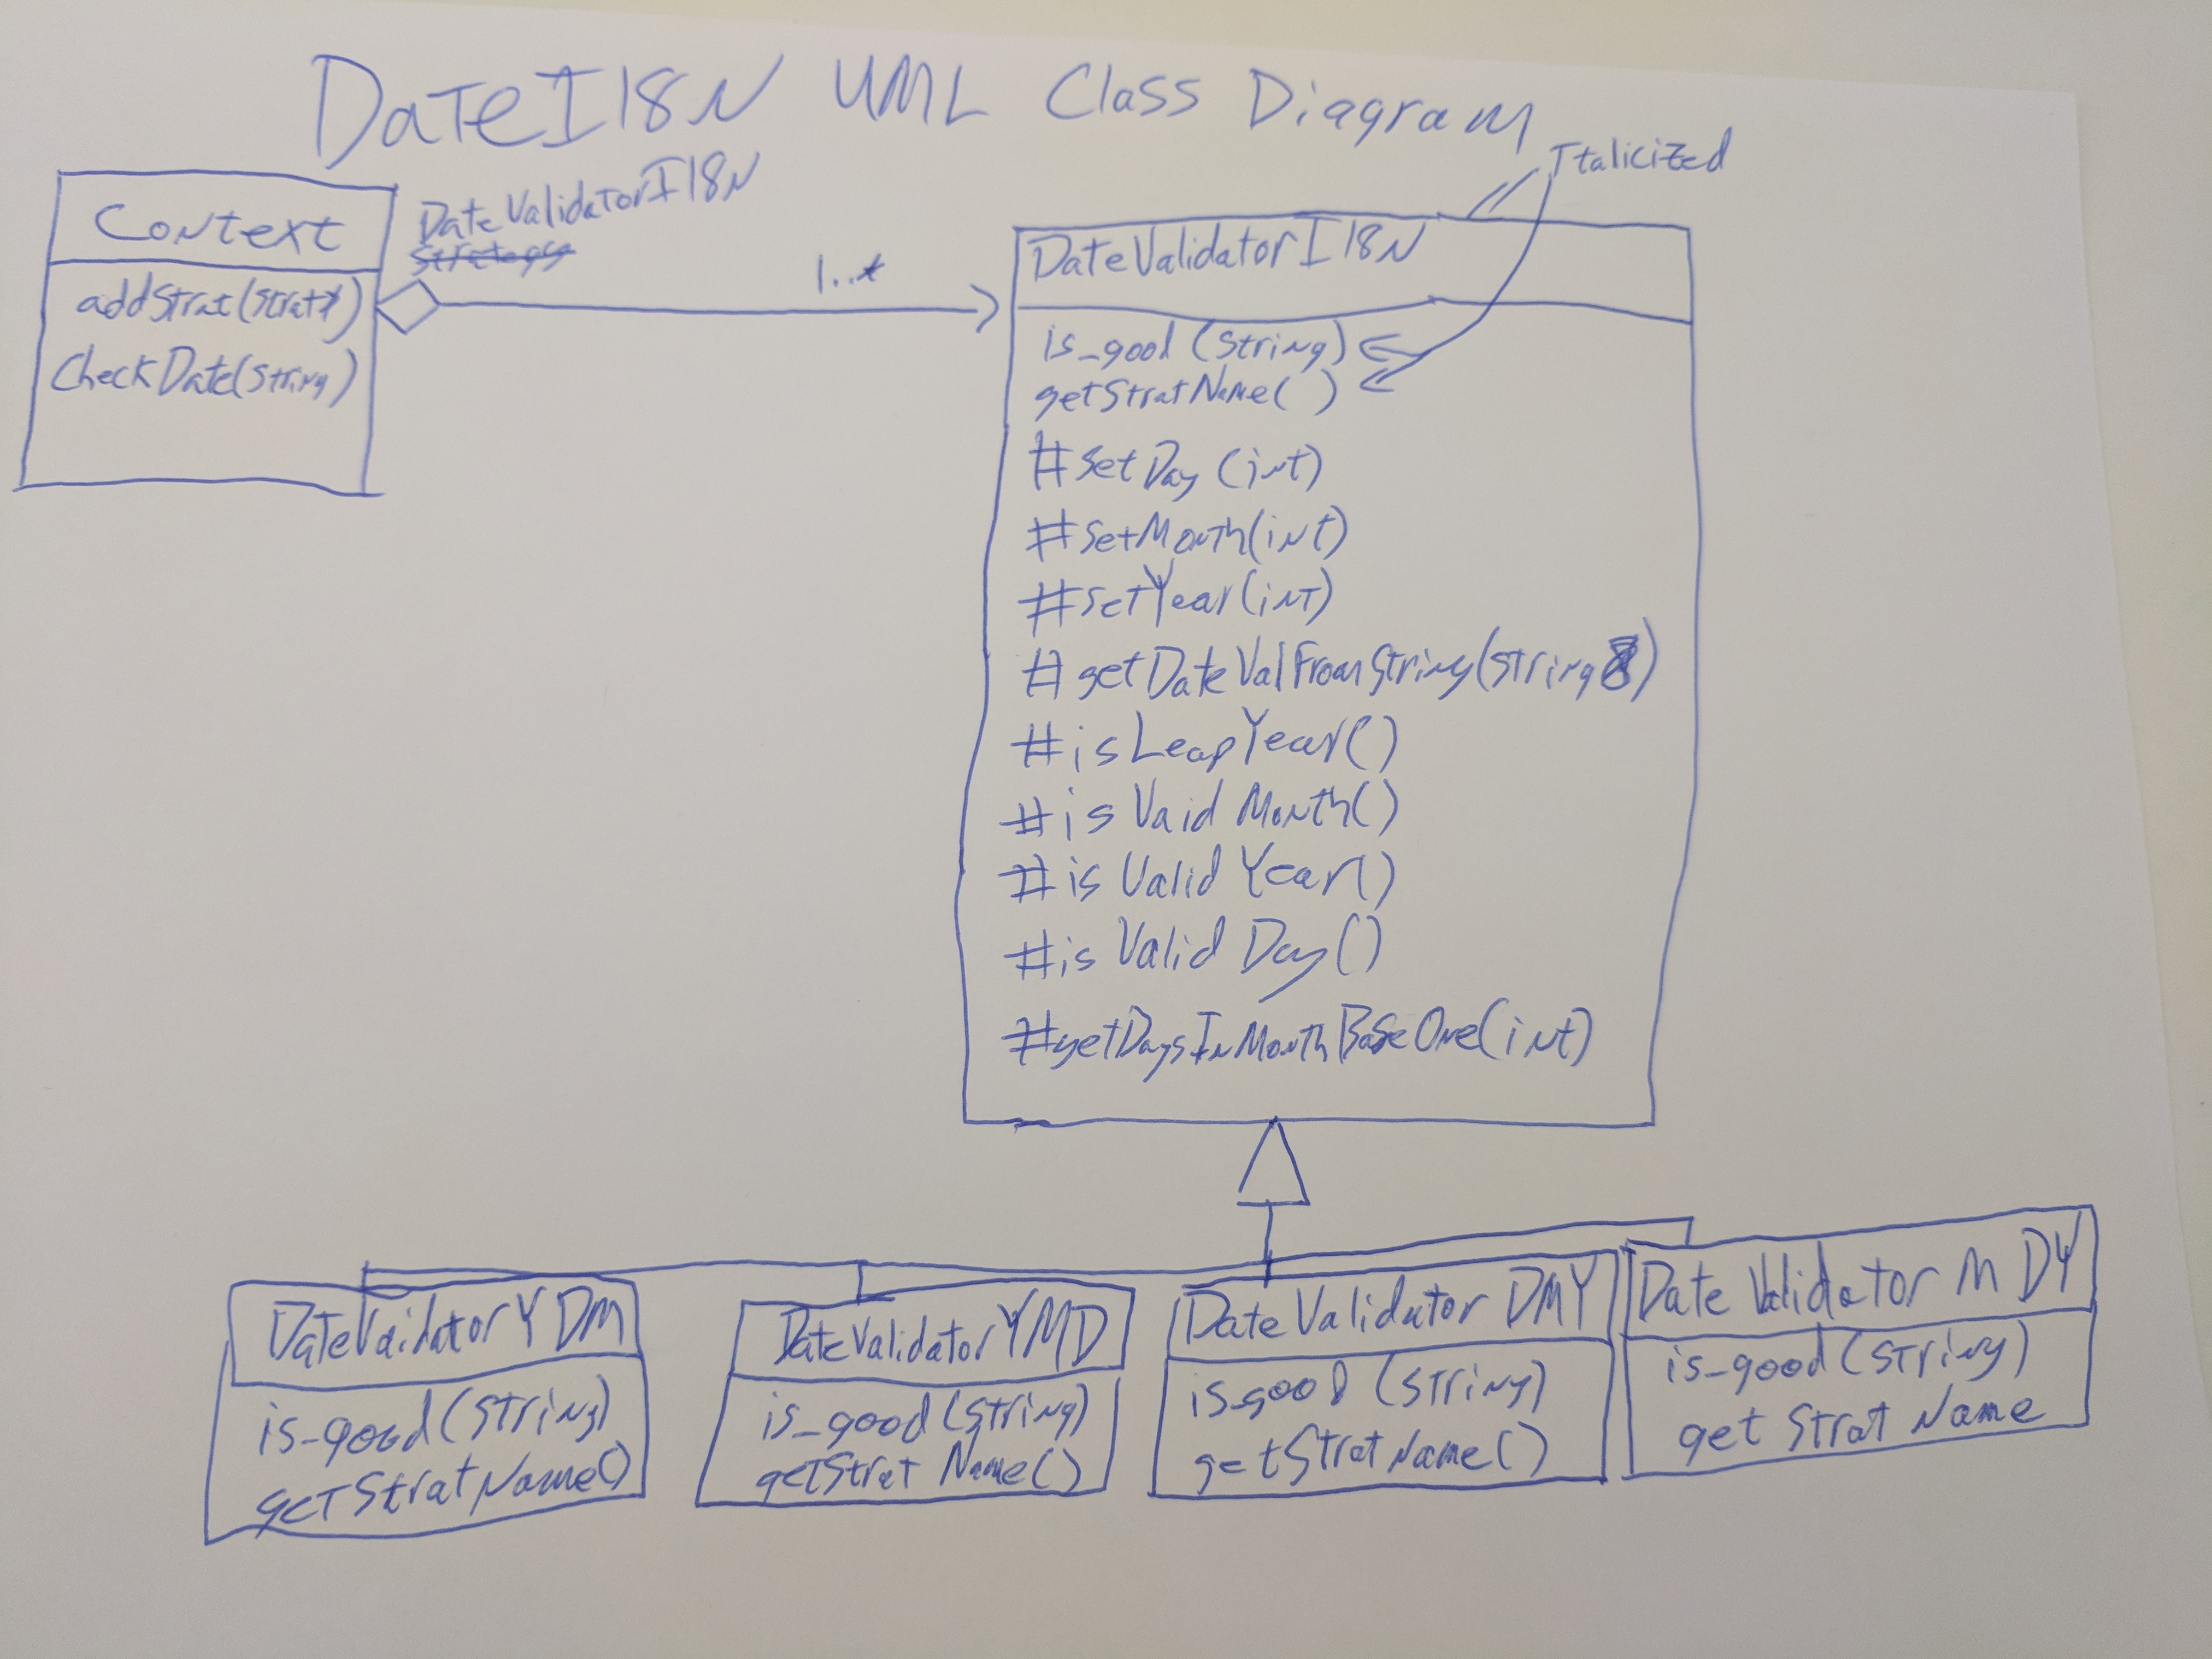 DateI18N UML Class Diagram
Italicized
Context
addStrat(strat*)
CheckDate(string)
DateValidatorI18N
Strategy
1..*
DateValidatorI18N
is_good (string)
getStratName( )
#setDay (int)
#setMonth(int)
#setYear(int)
#getDateValFromString(string)
#isLeapYear()
#isVaidMonth()
#isValidYear()
#isValidDay()
#getDaysInMonthBaseOne(int)
DateVaidatorYDM
is_good(string)
getStratName()
DateValidatorYMD
is_good(string)
getStratName()
DateValidatorDMY
is_good(string)
getStratName()
DateValidatorMDY
is_good(string)
getStratName